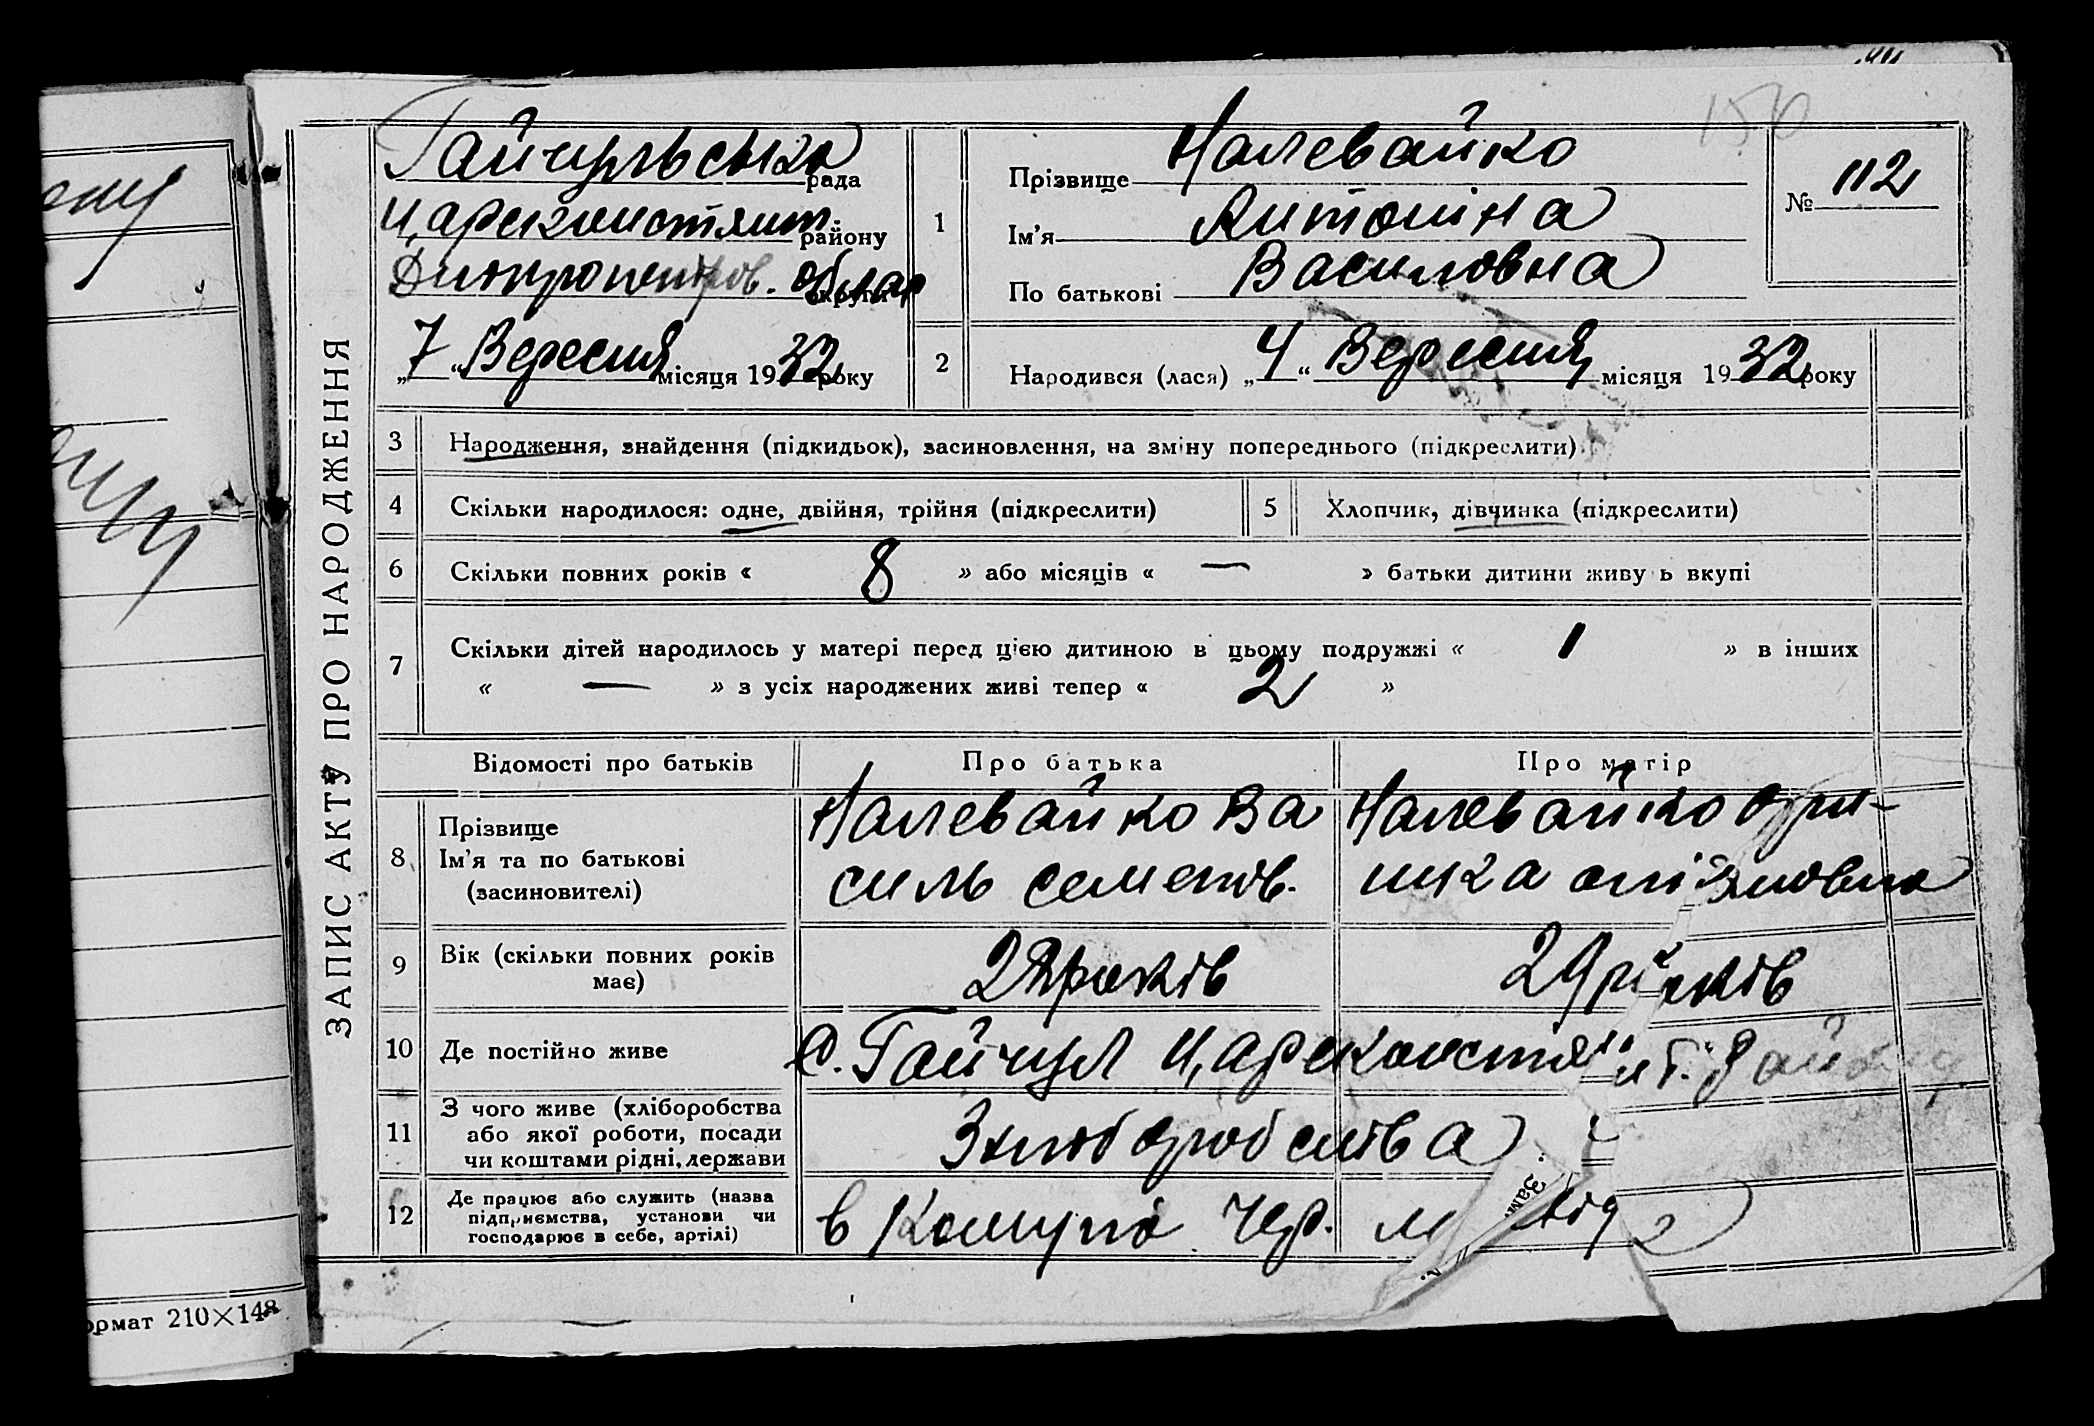 150
ЗАПИС АКТУ ПРО НАРОДЖЕННЯ
Гайчульська рада
Царекостянт. району
Дніпропетров. облас округи
„7“ Вересня місяця 1932 року
1
Прізвище Налевайко
Ім'я Антоніна
По батькові Василовна
№ 112
2
Народився (лася) „4“ Вересня місяця 1932 року
3 Народження, знайдення (підкидьок), засиновлення, на зміну попереднього (підкреслити)
4 Скільки народилося: одне, двійня, трійня (підкреслити)
5 Хлопчик, дівчинка (підкреслити)
6 Скільки повних років « 8 » або місяців « — » батьки дитини живуть вкупі
7 Скільки дітей народилось у матері перед цією дитиною в цьому подружжі « 1 » в інших
« — » з усіх народжених живі тепер « 2 »
Відомості про батьків Про батька Про матір
8 Прізвище
Ім'я та по батькові
(засиновителі)
Налевайко Ва
силь Семенов.
Налевайко
9 Вік (скільки повних років
має)
років
29 років
10 Де постійно живе
с. Гайчул Царекостянт. району
11 З чого живе (хліборобства
або якої роботи, посади
чи коштами рідні, держави
З хліборобства
12 Де працює або служить (назва
підприємства, установи чи
господарює в себе, артілі)
в Комуні Чер.
Зам.
ормат 210×148